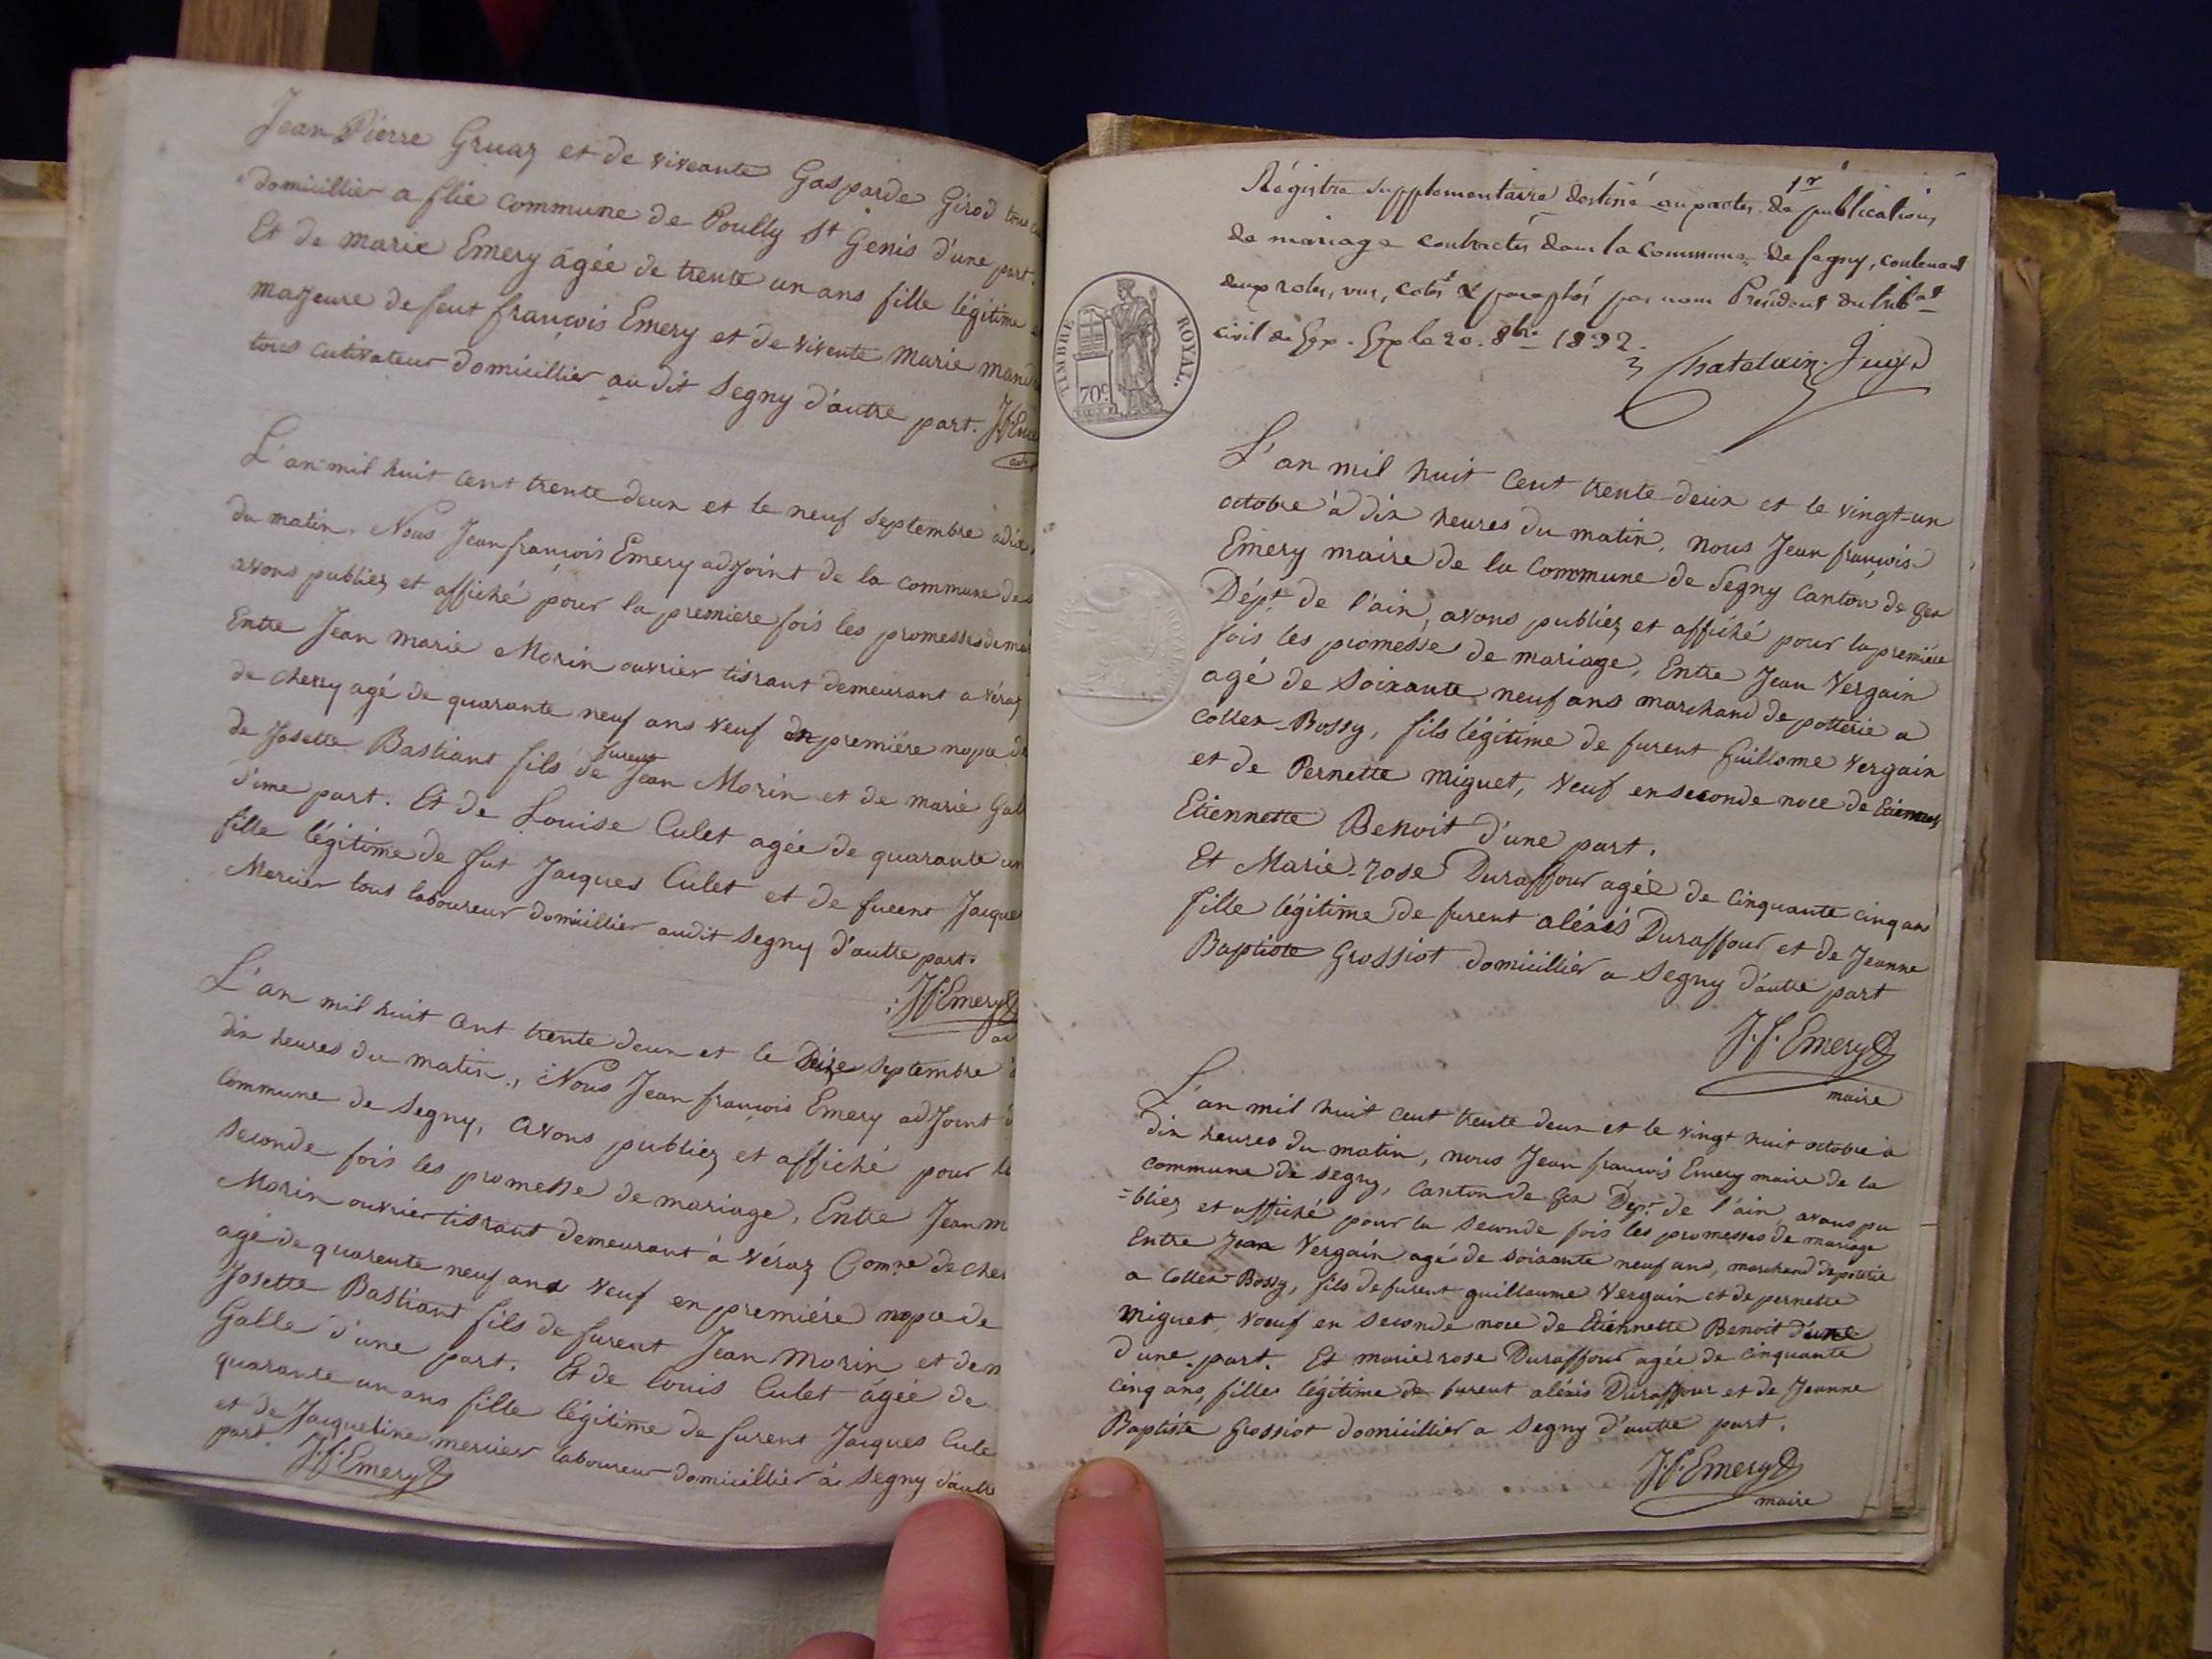 Jean Pierre Gruaz et de viveante Gasparde Girod tous
domicillier a flie commune de Poully St Genis d'une part.
Et de marie Emery âgée de trente un ans fille légitime
majeure de feut françois Emery et de vivente marie
tous cutivateur domicillier au dit Segny d'autre part.
L'an mil huit cent trente deux et le neuf Septembre
du matin. Nous Jean françois Emery adjoint de la commune de
avons publiez et affiché pour la premiere fois les promesses de
Entre Jean marie Morin ouvrier tissant demeurant a véraz
de chevry agé de quarante neuf ans veuf en premiére nopce
de Josette Bastiant fils de furent Jean Morin et de marie
d'une part. Et de Louise Culet agée de quarante un
fille légitime de fut Jacques Culet et de fucent
Mercier tout laboureur domicillier audit Segny d'autre part.
J.f. Emery
L'an mil huit cent trente deux et le Seize septembre
dix heures du matin, Nous Jean françois Emery adjoint
commune de Segny, avons publiez et affiché pour la
seconde fois les promesse de mariage, Entre Jean
Morin ouvrier tissant demeurant à véraz Comne de
agé de quarente neuf ans veuf en premiére nopce de
Josette Bastiant fils de furent Jean Morin et de
Galle d'une part. Et de louis Culet âgée de
quarante un ans fille légitime de furent Jacques
et de Jacqueline mercier laboureur domicillier à Segny d'autre
part. J.f. Emery
1r
Régistre supplementaire destiné aux actes de publications
de mariage contractés dans la commune de Segny, contenant
deux roles, vus, cotés & paraphés par nous Président du tribal
civil de Gex. Gex le 20. 8bre 1832.
Chatelain. Juge
TIMBRE ROYAL.
70c
L'an mil huit cent trente-deux et le vingt-un
octobre à dix heures du matin, nous Jean françois
Emery maire de la Commune de Segny Canton de Gex
Dépt. de l'ain, avons publiez et affiché pour la premiére
fois les promesse de mariage, Entre Jean Vergain
agé de soixante neuf ans marchand de potterie a
Collex-Bossy, fils légitime de furent guillaume Vergain
et de Pernette miguet, veuf en seconde noce de
Etiennette Benoit d'une part.
Et Marie-rose Duraffour agée de cinquante cinq ans
fille légitime de furent aléxis Duraffour et de Jeanne
Baptiste Grossiot domicillier a Segny d'autre part
J.f. Emery
maire
L'an mil huit cent trente deux et le vingt huit octobre à
dix heures du matin, nous Jean françois Emery maire de la
commune de segny, canton de Gex Dept. de l'ain, avons pu
=bliez et affiché pour la seconde fois les promesses de mariage
Entre Jean Vergain agé de soixante neuf ans, marchand de potterie
a Collex-Bossy, fils de furent guillaume Vergain et de pernette
miguet, veuf en seconde noce de Etiennette Benoit d'une
d'une part. Et marie rose Duraffour agée de cinquante
cinq ans, filles légitime de furent aléxis Duraffour et de Jeanne
Baptiste Grossiot domicillier a Segny d'autre part.
J.f. Emery
maire